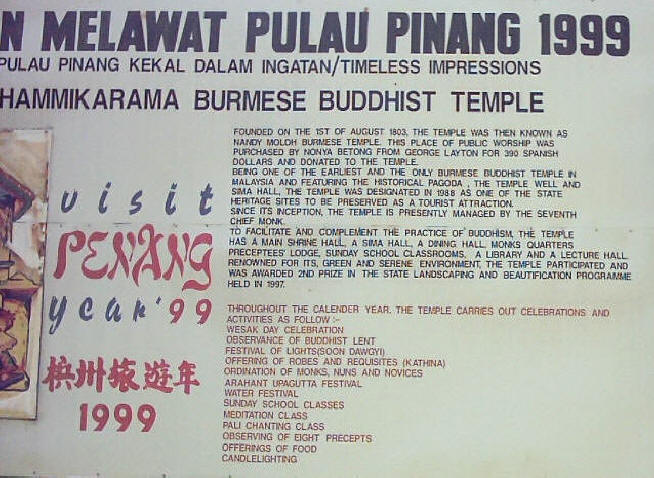 N MELAWAT PULAU PINANG 1999
PULAU PINANG KEKAL DALAM INGATAN/TIMELESS IMPRESSIONS
HAMMIKARAMA BURMESE BUDDHIST TEMPLE
FOUNDED ON THE 1ST OF AUGUST 1803, THE TEMPLE WAS THEN KNOWN AS
NANDY MOLOH BURMESE TEMPLE. THIS PLACE OF PUBLIC WORSHIP WAS
PURCHASED BY NONYA BETONG FROM GEORGE LAYTON FOR 390 SPANISH
DOLLARS AND DONATED TO THE TEMPLE.
BEING ONE OF THE EARLIEST AND THE ONLY BURMESE BUDDHIST TEMPLE IN
MALAYSIA AND FEATURING THE HISTORICAL PAGODA , THE TEMPLE WELL AND
SIMA HALL, THE TEMPLE WAS DESIGNATED IN 1988 AS ONE OF THE STATE
HERITAGE SITES TO BE PRESERVED AS A TOURIST ATTRACTION.
SINCE ITS INCEPTION, THE TEMPLE IS PRESENTLY MANAGED BY THE SEVENTH
CHIEF MONK.
TO FACILITATE AND COMPLEMENT THE PRACTICE OF BUDDHISM, THE TEMPLE
HAS A MAIN SHRINE HALL, A SIMA HALL, A DINING HALL, MONKS QUARTERS
PRECEPTEES' LODGE, SUNDAY SCHOOL CLASSROOMS, A LIBRARY AND A LECTURE HALL.
RENOWNED FOR ITS, GREEN AND SERENE ENVIRONMENT, THE TEMPLE PARTICIPATED AND
WAS AWARDED 2ND PRIZE IN THE STATE LANDSCAPING AND BEAUTIFICATION PROGRAMME
HELD IN 1997.
THROUGHOUT THE CALENDER YEAR. THE TEMPLE CARRIES OUT CELEBRATIONS AND
ACTIVITIES AS FOLLOW :-
WESAK DAY CELEBRATION
OBSERVANCE OF BUDDHIST LENT
FESTIVAL OF LIGHTS(SOON DAWGYI)
OFFERING OF ROBES AND REQUISITES (KATHINA)
ORDINATION OF MONKS, NUNS AND NOVICES
ARAHANT UPAGUTTA FESTIVAL
WATER FESTIVAL
SUNDAY SCHOOL CLASSES
MEDITATION CLASS
PALI CHANTING CLASS
OBSERVING OF EIGHT PRECEPTS
OFFERINGS OF FOOD
CANDLELIGHTING
visit
PENANG
year '99
槟州旅遊年
1999